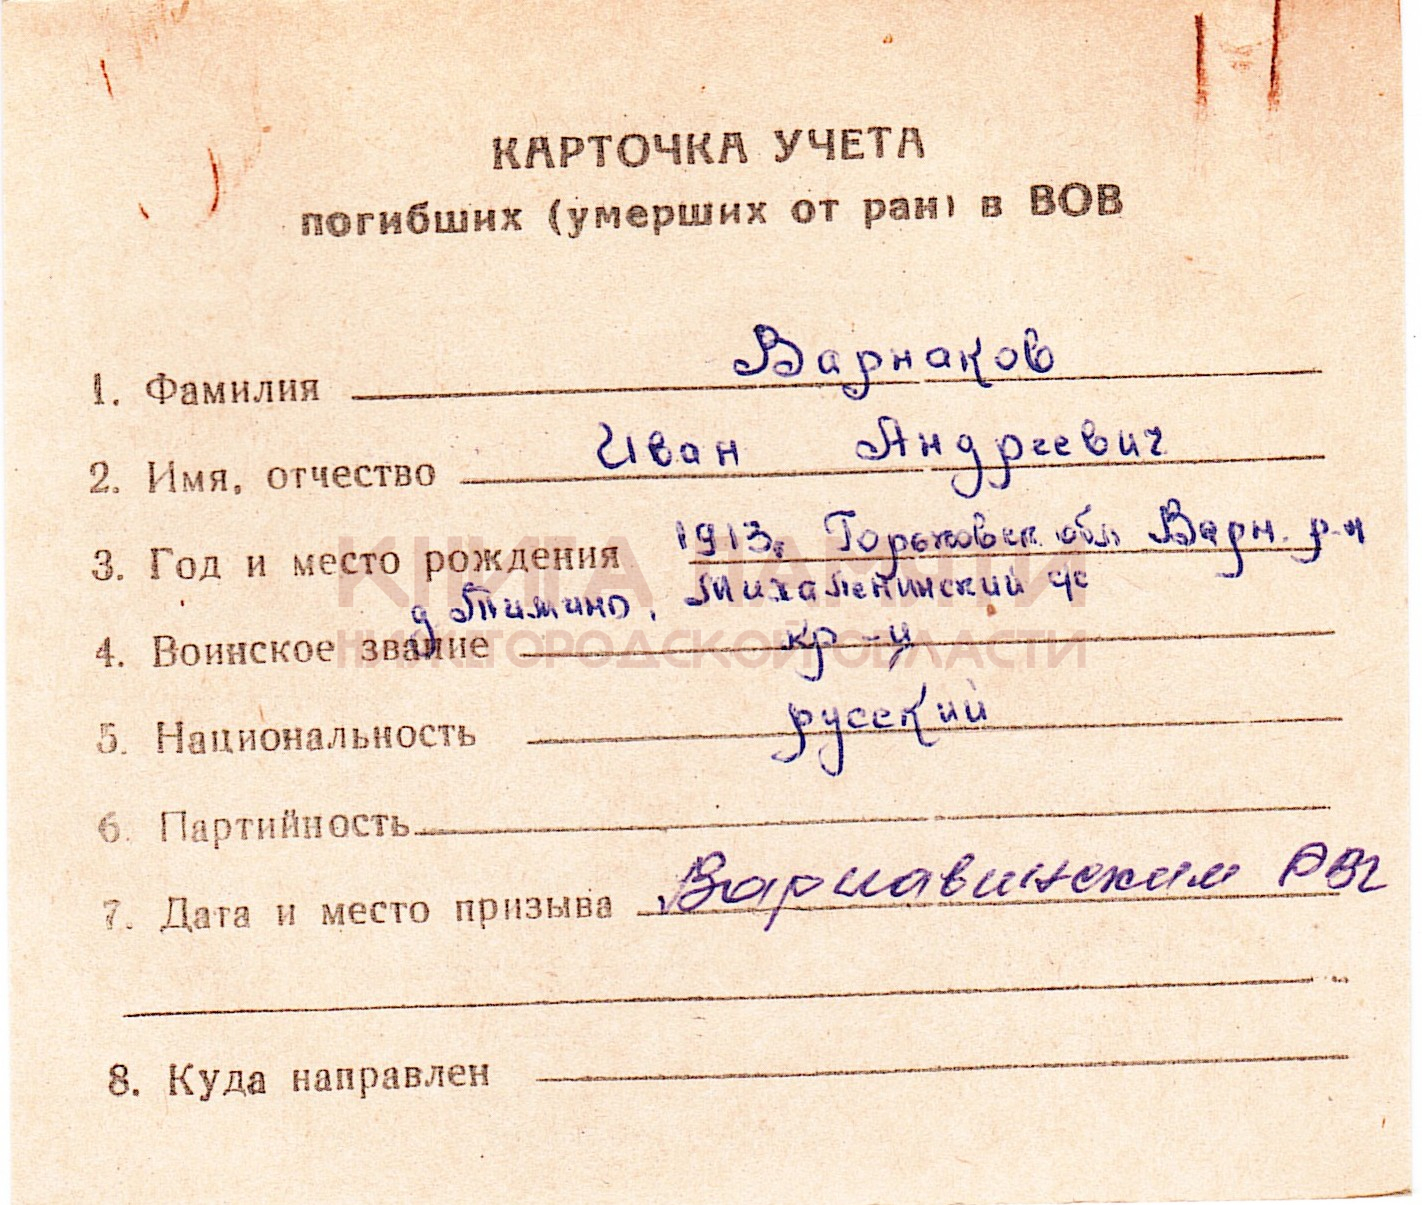 КАРТОЧКА УЧЕТА
погибших (умерших от ран) в ВОВ
1. Фамилия Варнаков
2. Имя, отчество Иван Андреевич
3. Год и место рождения 1913г Горьковск обл Варн. р-н
д Тимино, Михаленинский с/с
4. Воинское звание кр-ц
5. Национальность русский
6. Партийность
7. Дата и место призыва Варнавинским РВК
8. Куда направлен
КНИГА ПАМЯТИ
НИЖЕГОРОДСКОЙ ОБЛАСТИ